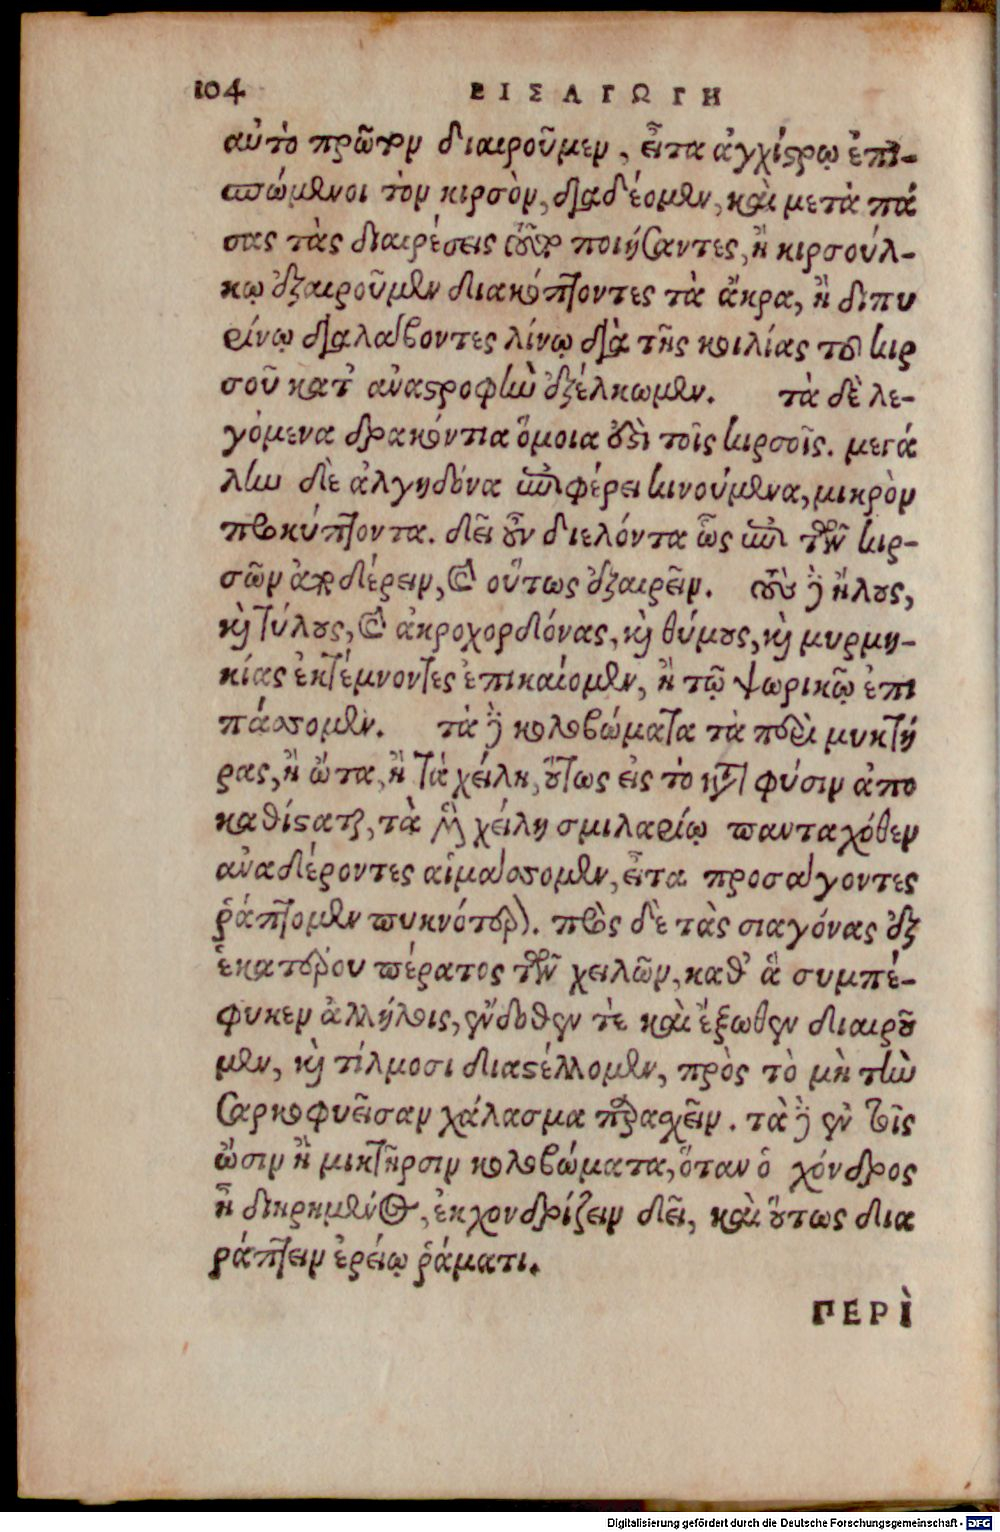 104 ΕΙΣΑΓΩΓΗ
αὐτὸ πρῶτον διαιροῦμεν, εἶτα ἀγχίστρῳ ἐπι-
σπώμενοι τὸν κιρσὸν, διαδέομεν, καὶ μετὰ πά
σας τὰς διαιρέσεις τοῦτο ποιήσαντες, ἢ κιρσούλ-
κῳ ἐξαιροῦμεν διακόπτοντες τὰ ἄκρα, ἢ διπυ
ρίνῳ διαλαβόντες λίνῳ διὰ τῆς κοιλίας τοῦ κιρ
σοῦ κατ' ἀναστροφὴν ἐξέλκωμεν. τὰ δὲ λε-
γόμενα δρακόντια ὅμοια ἐστὶ τοῖς κιρσοῖς. μεγά
λην δὲ ἀλγηδόνα ἐπιφέρει κινούμενα, μικρὸν
προκύπτοντα. δεῖ οὖν διελόντα ὡς ἐπὶ τῶν κιρ-
σῶν ἀποδέρειν, καὶ οὕτως ἐξαιρεῖν. τοὺς δὲ ἥλους,
καὶ τύλους, καὶ ἀκροχορδόνας, καὶ θύμους, καὶ μυρμη-
κίας ἐκτέμνοντες ἐπικαίομεν, ἢ τῷ ψωρικῷ ἐπι
πάσσομεν. τὰ δὲ κολοβώματα τὰ περὶ μυκτῆ
ρας, ἢ ὦτα, ἢ τὰ χείλη, οὕτως εἰς τὸ κατὰ φύσιν ἀπο
καθίσταται, τὰ μὲν χείλη σμιλαρίῳ πανταχόθεν
ἀναδέροντες αἱμάσσομεν, εἶτα προσάγοντες
ῥάπτομεν πυκνότερον. πρὸς δὲ τὰς σιαγόνας ἐξ
ἑκατέρου πέρατος τῶν χειλῶν, καθ' ἃ συμπέ-
φυκεν ἀλλήλοις, ἔνδοθεν τὲ καὶ ἔξωθεν διαιροῦ
μεν, καὶ τίλμοσι διαστέλλομεν, πρὸς τὸ μὴ τὴν
σαρκοφυεῖσαν χάλασμα παρασχεῖν. τὰ δὲ ἐν τοῖς
ὠσὶν ἢ μικτῆρσιν κολοβώματα, ὅταν ὁ χόνδρος
ᾖ διηρημένος, ἐκχονδρίζειν δεῖ, καὶ οὕτως δια
ράπτειν ἐρείῳ ῥάματι.
ΠΕΡῚ
Digitalisierung gefördert durch die Deutsche Forschungsgemeinschaft - DFG